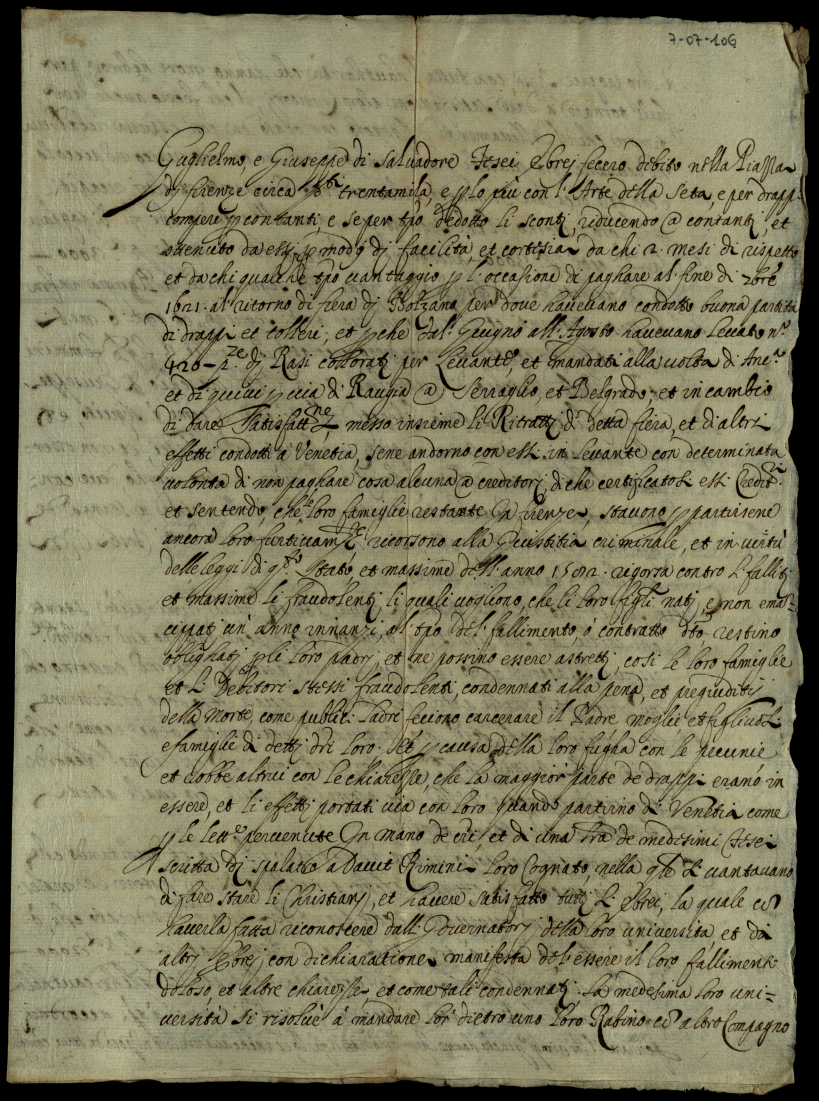 7-07-106
Guglielmo, e Giuseppe di Salvadore Tesei Ebrej fecero debito nella Piazza
dj firenze circa trentamila, e lo piu con l'Arte della Seta, e per drappi
compere contanti, e se per tpo dedotto li sconti, riducendo @ contanti, et
ottenuto da essi modo dj facilità, et cortesia da chi 2. mesi di rispetto
et da chi qualche tpo vantaggio l'occasione di paghare al fine di 9bre
1621. al ritorno di fiera dj Bolzano per dove havevano condotto buona partita
di drappi et colleri, et che dal Giugno all'Agosto havevano levato n.o
420 - p.ze dj Rasi collorati per Levante, et mandati alla volta di Anc.a
et di quivi via di Raugia @ Serraglio, et Belgrado, et in cambio
di dare Satisfatt.ne messo insieme li Ritratti di detta fiera, et d'altri
effetti condotti à Venetia, sene andorno con essi in Levante con determinata
volontà di non paghare cosa alcuna @ creditorj, di che certificatosi essi Credit.ri
et sentendo, che loro famiglie restante In firenze, stavono partirsene
ancora loro furtivam.te ricorsono alla Giustitia criminale, et in virtù
delle leggi di q.sto Stato et massime dell'anno 1582. rigorsa contro li falliti
et massime li fraudolenti, li quali vogliono, che li loro figli natj, e non eman-
cippatj un' anno innanzi, al tpo del fallimento, ò contratto dto restino
obligatj li loro Padrj, et ne possino essere astretti, così le loro famiglie
et li Debitori stessi fraudolenti, condennati alla pena, et pregiuditij
della Morte, come public. Ladri fecione carcerare il Padre moglie et figliuoli
e famiglie di dettj dri loro causa della loro fugha con le pecunie
et robbe altrui con le chiarezze, che la maggior parte de drappi erano in
essere, et li effetti portati via con loro quando partirno di Venetia come
le lett.e pervenute In mano de cri, et di una lra de medesimi Tesei
scritta dj Spalatto a Davit Rimini loro Cognato, nella qle si vantavano
di fare stare li Christianj, et havere satisfatto tutti li Ebrei, la quale
haverla fatta riconoscere dall. Governatorj della loro università et da
altrj Ebrej con dichiaratione manifesta dell'essere il loro falliment.
doloso, et altre chiarezze, et come tali condennatj. La medesima loro uni=
versità si risolvè à mandare lor dietro uno loro Rabino altro Compagno